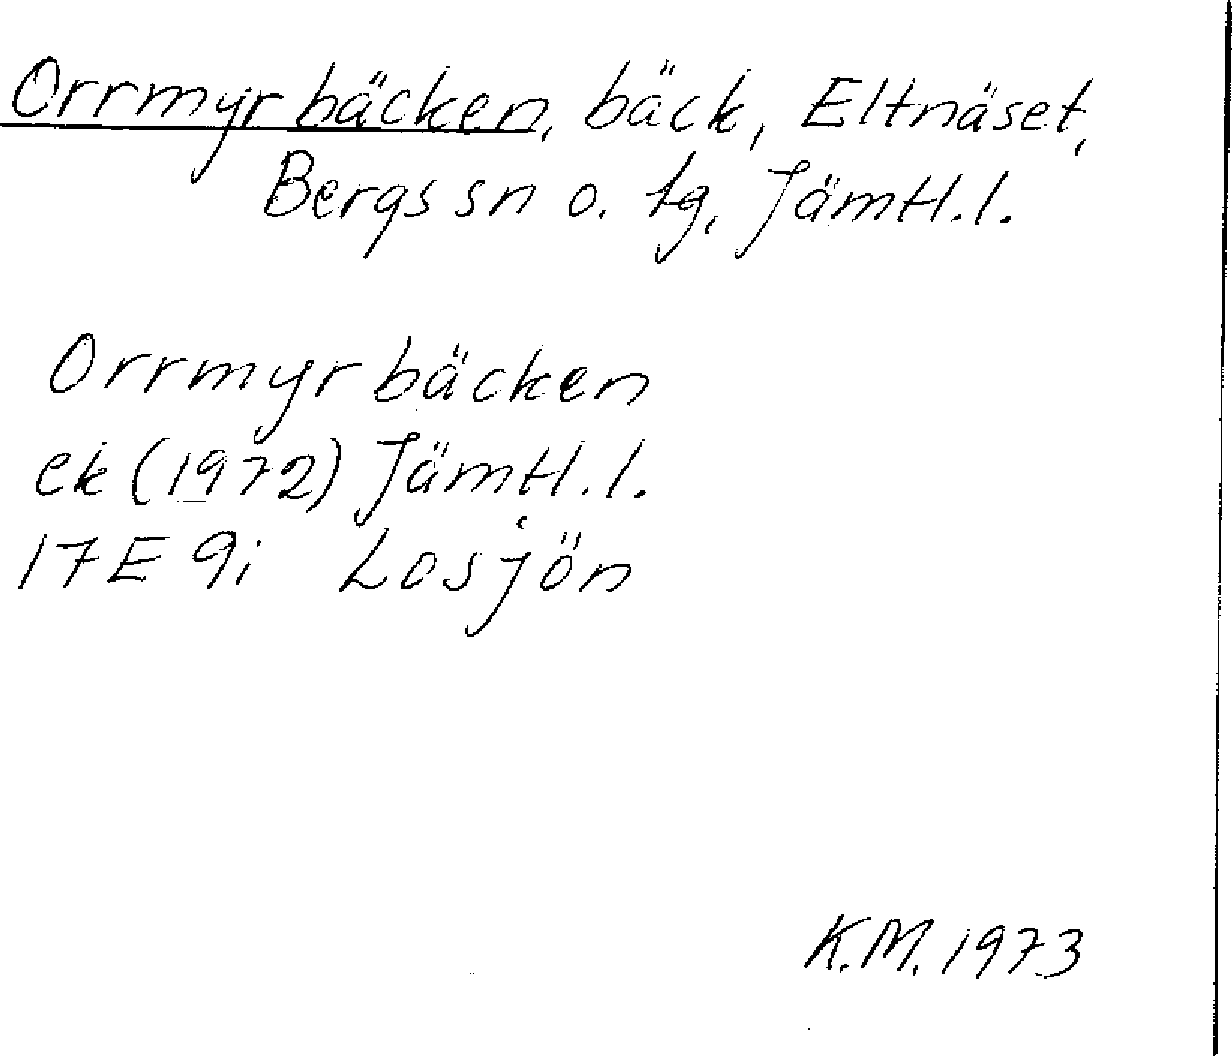 Orrmyrbäcken, bäck, Eltnäset,
Bergs sn o. tg, Jämtl.l.
Orrmyrbäcken
ek (1972) Jämtl.l.
17E 9i Losjön
K.M. 1973